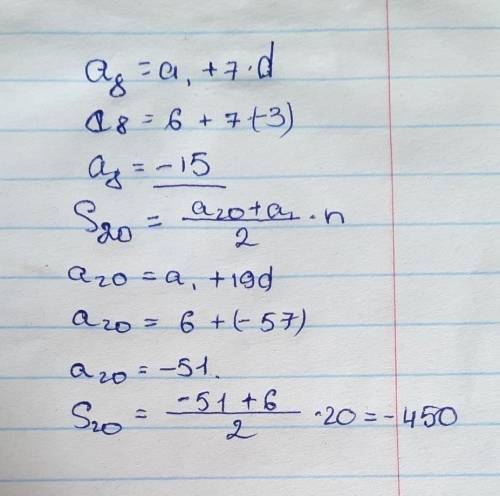 a₈ = a₁ + 7·d
a₈ = 6 + 7(-3)
a₈ = -15
S₂₀ = (a₂₀ + a₁)/2 · n
a₂₀ = a₁ + 19d
a₂₀ = 6 + (-57)
a₂₀ = -51.
S₂₀ = (-51 + 6)/2 · 20 = -450